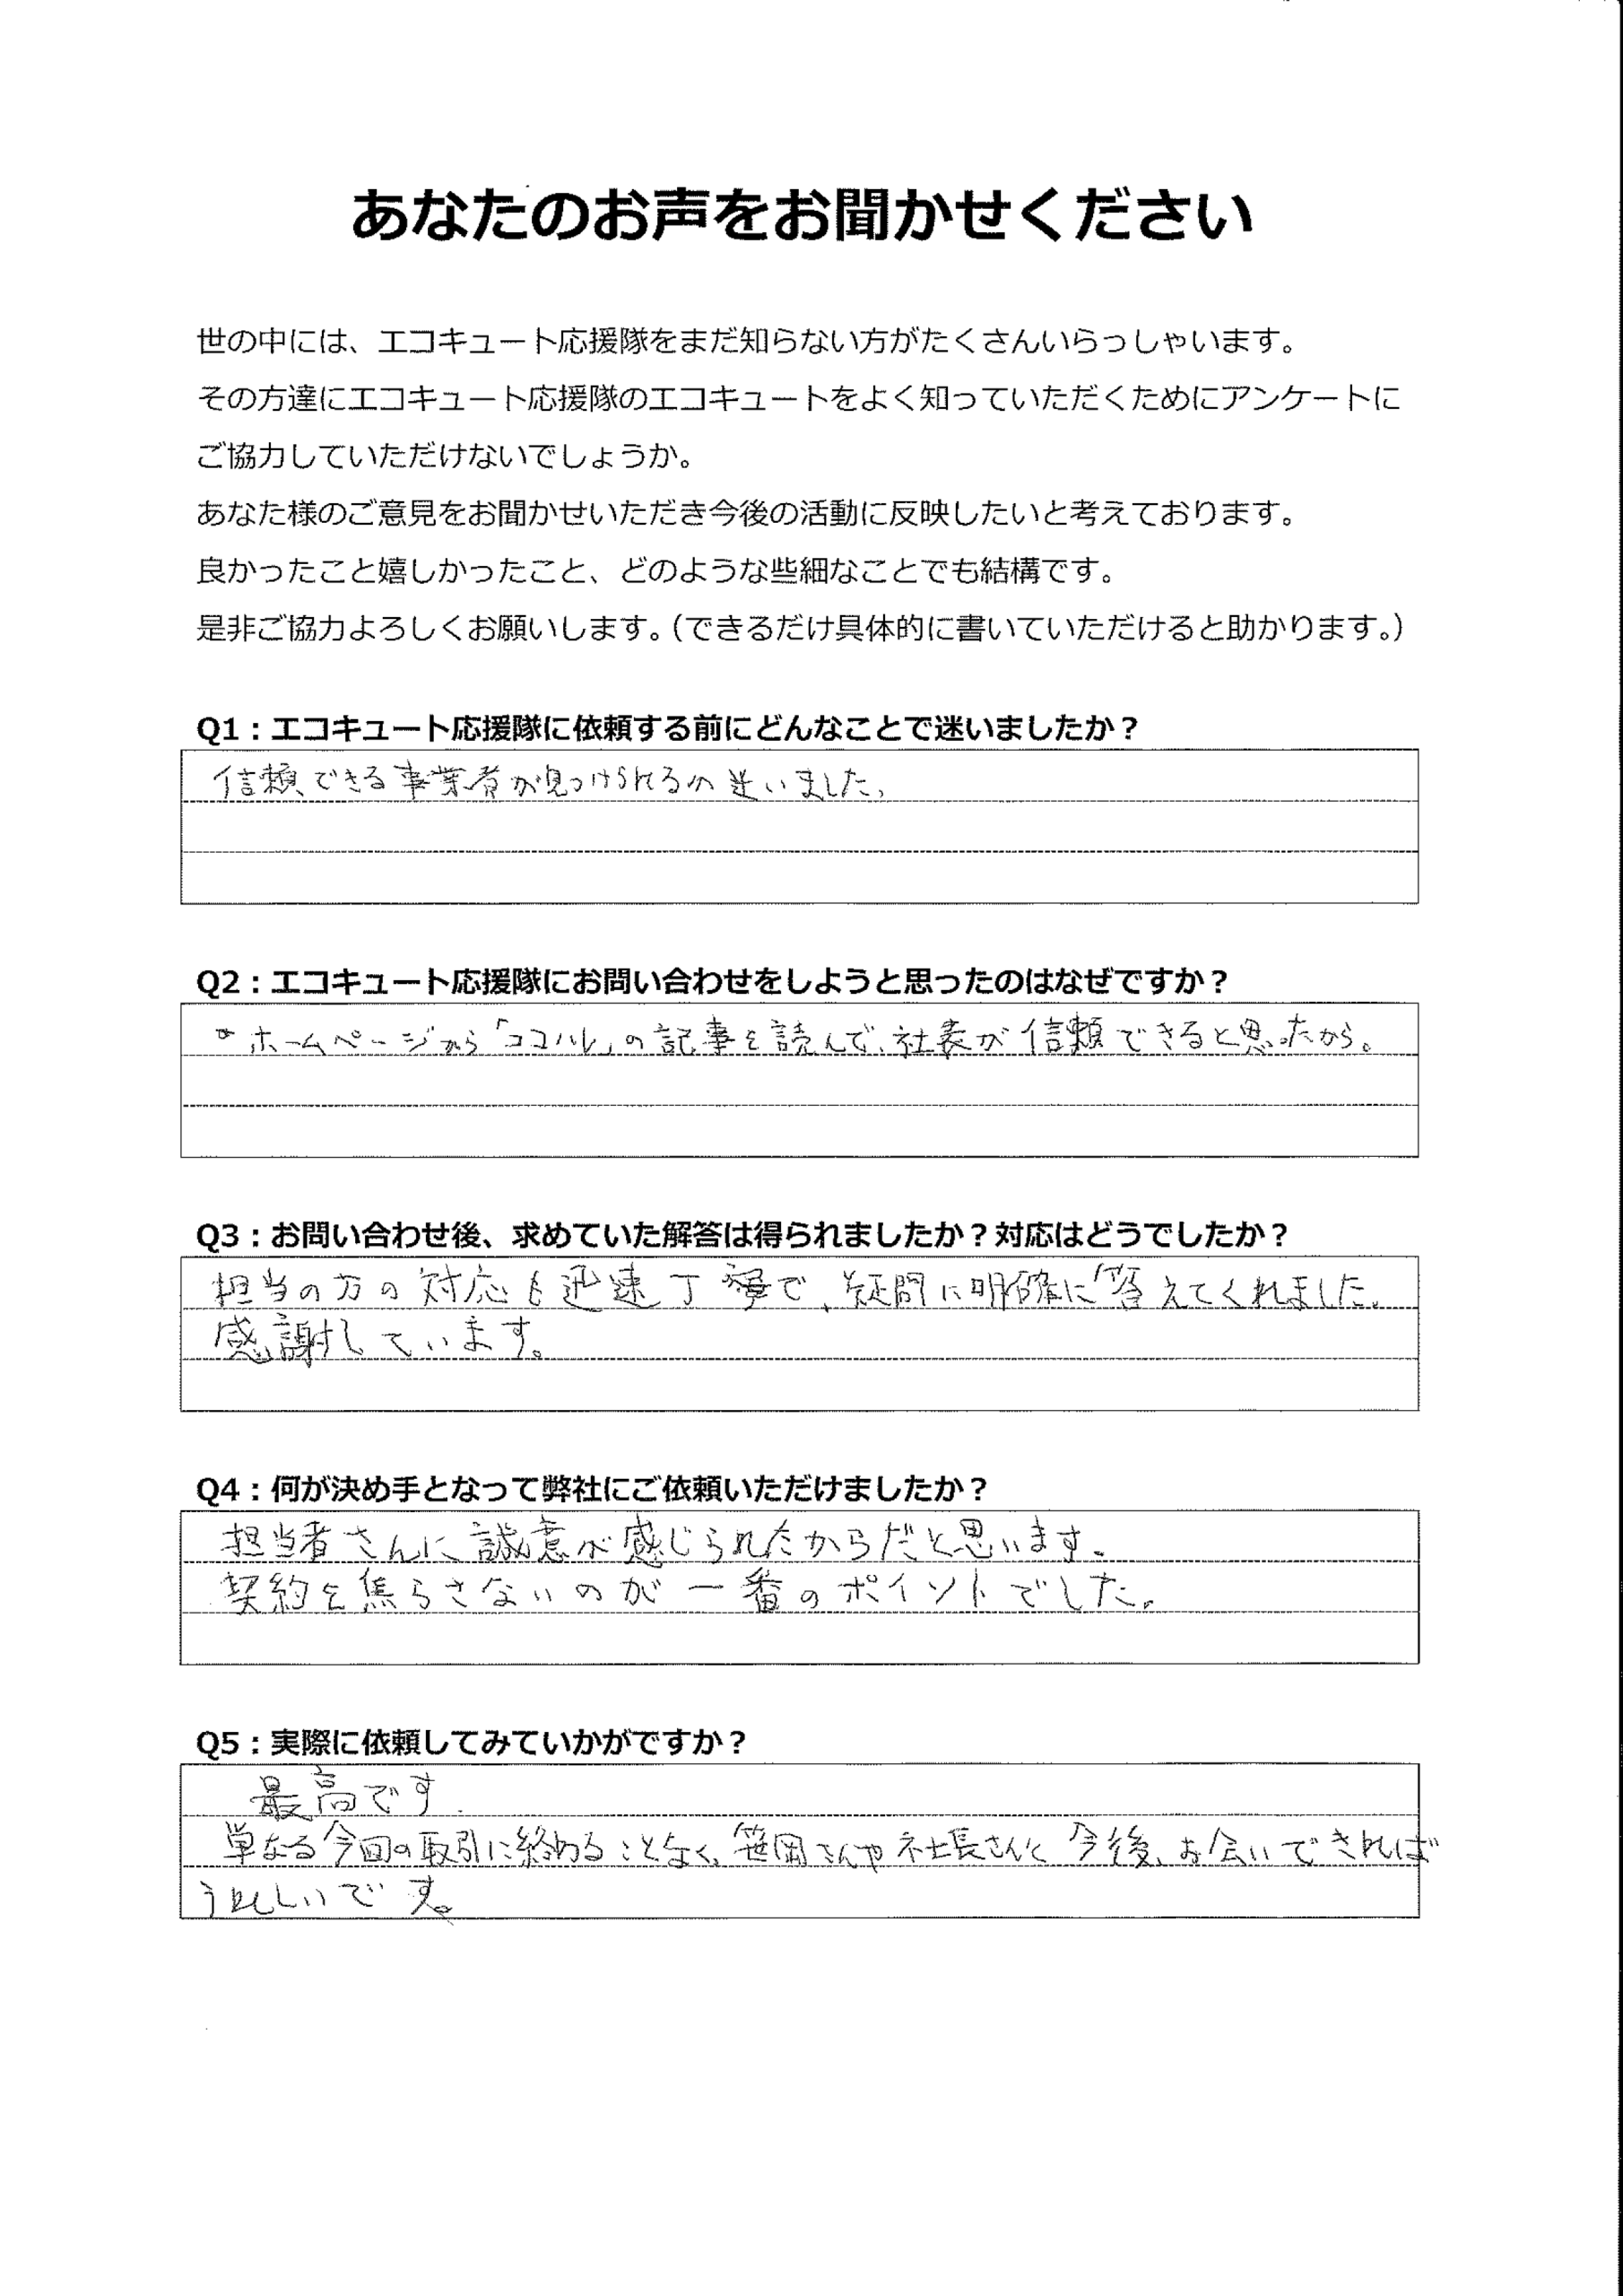 あなたのお声をお聞かせください
世の中には、エコキュート応援隊をまだ知らない方がたくさんいらっしゃいます。
その方達にエコキュート応援隊のエコキュートをよく知っていただくためにアンケートに
ご協力していただけないでしょうか。
あなた様のご意見をお聞かせいただき今後の活動に反映したいと考えております。
良かったこと嬉しかったこと、どのような些細なことでも結構です。
是非ご協力よろしくお願いします。（できるだけ具体的に書いていただけると助かります。）
Q1：エコキュート応援隊に依頼する前にどんなことで迷いましたか？
信頼できる事業者が見つけられるか迷いました、
Q2：エコキュート応援隊にお問い合わせをしようと思ったのはなぜですか？
ホームページから「ココハレ」の記事を読んで、社長が信頼できると思ったから。
Q3：お問い合わせ後、求めていた解答は得られましたか？対応はどうでしたか？
担当の方の対応も迅速丁寧で、疑問に明確に答えてくれました。
感謝しています。
Q4：何が決め手となって弊社にご依頼いただけましたか？
担当者さんに誠意が感じられたからだと思います。
契約を焦らさないのが一番のポイントでした。
Q5：実際に依頼してみていかがですか？
最高です.
単なる今回の取引に終わることなく、笹岡さんや社長さんと今後、お会いできれば
うれしいです。